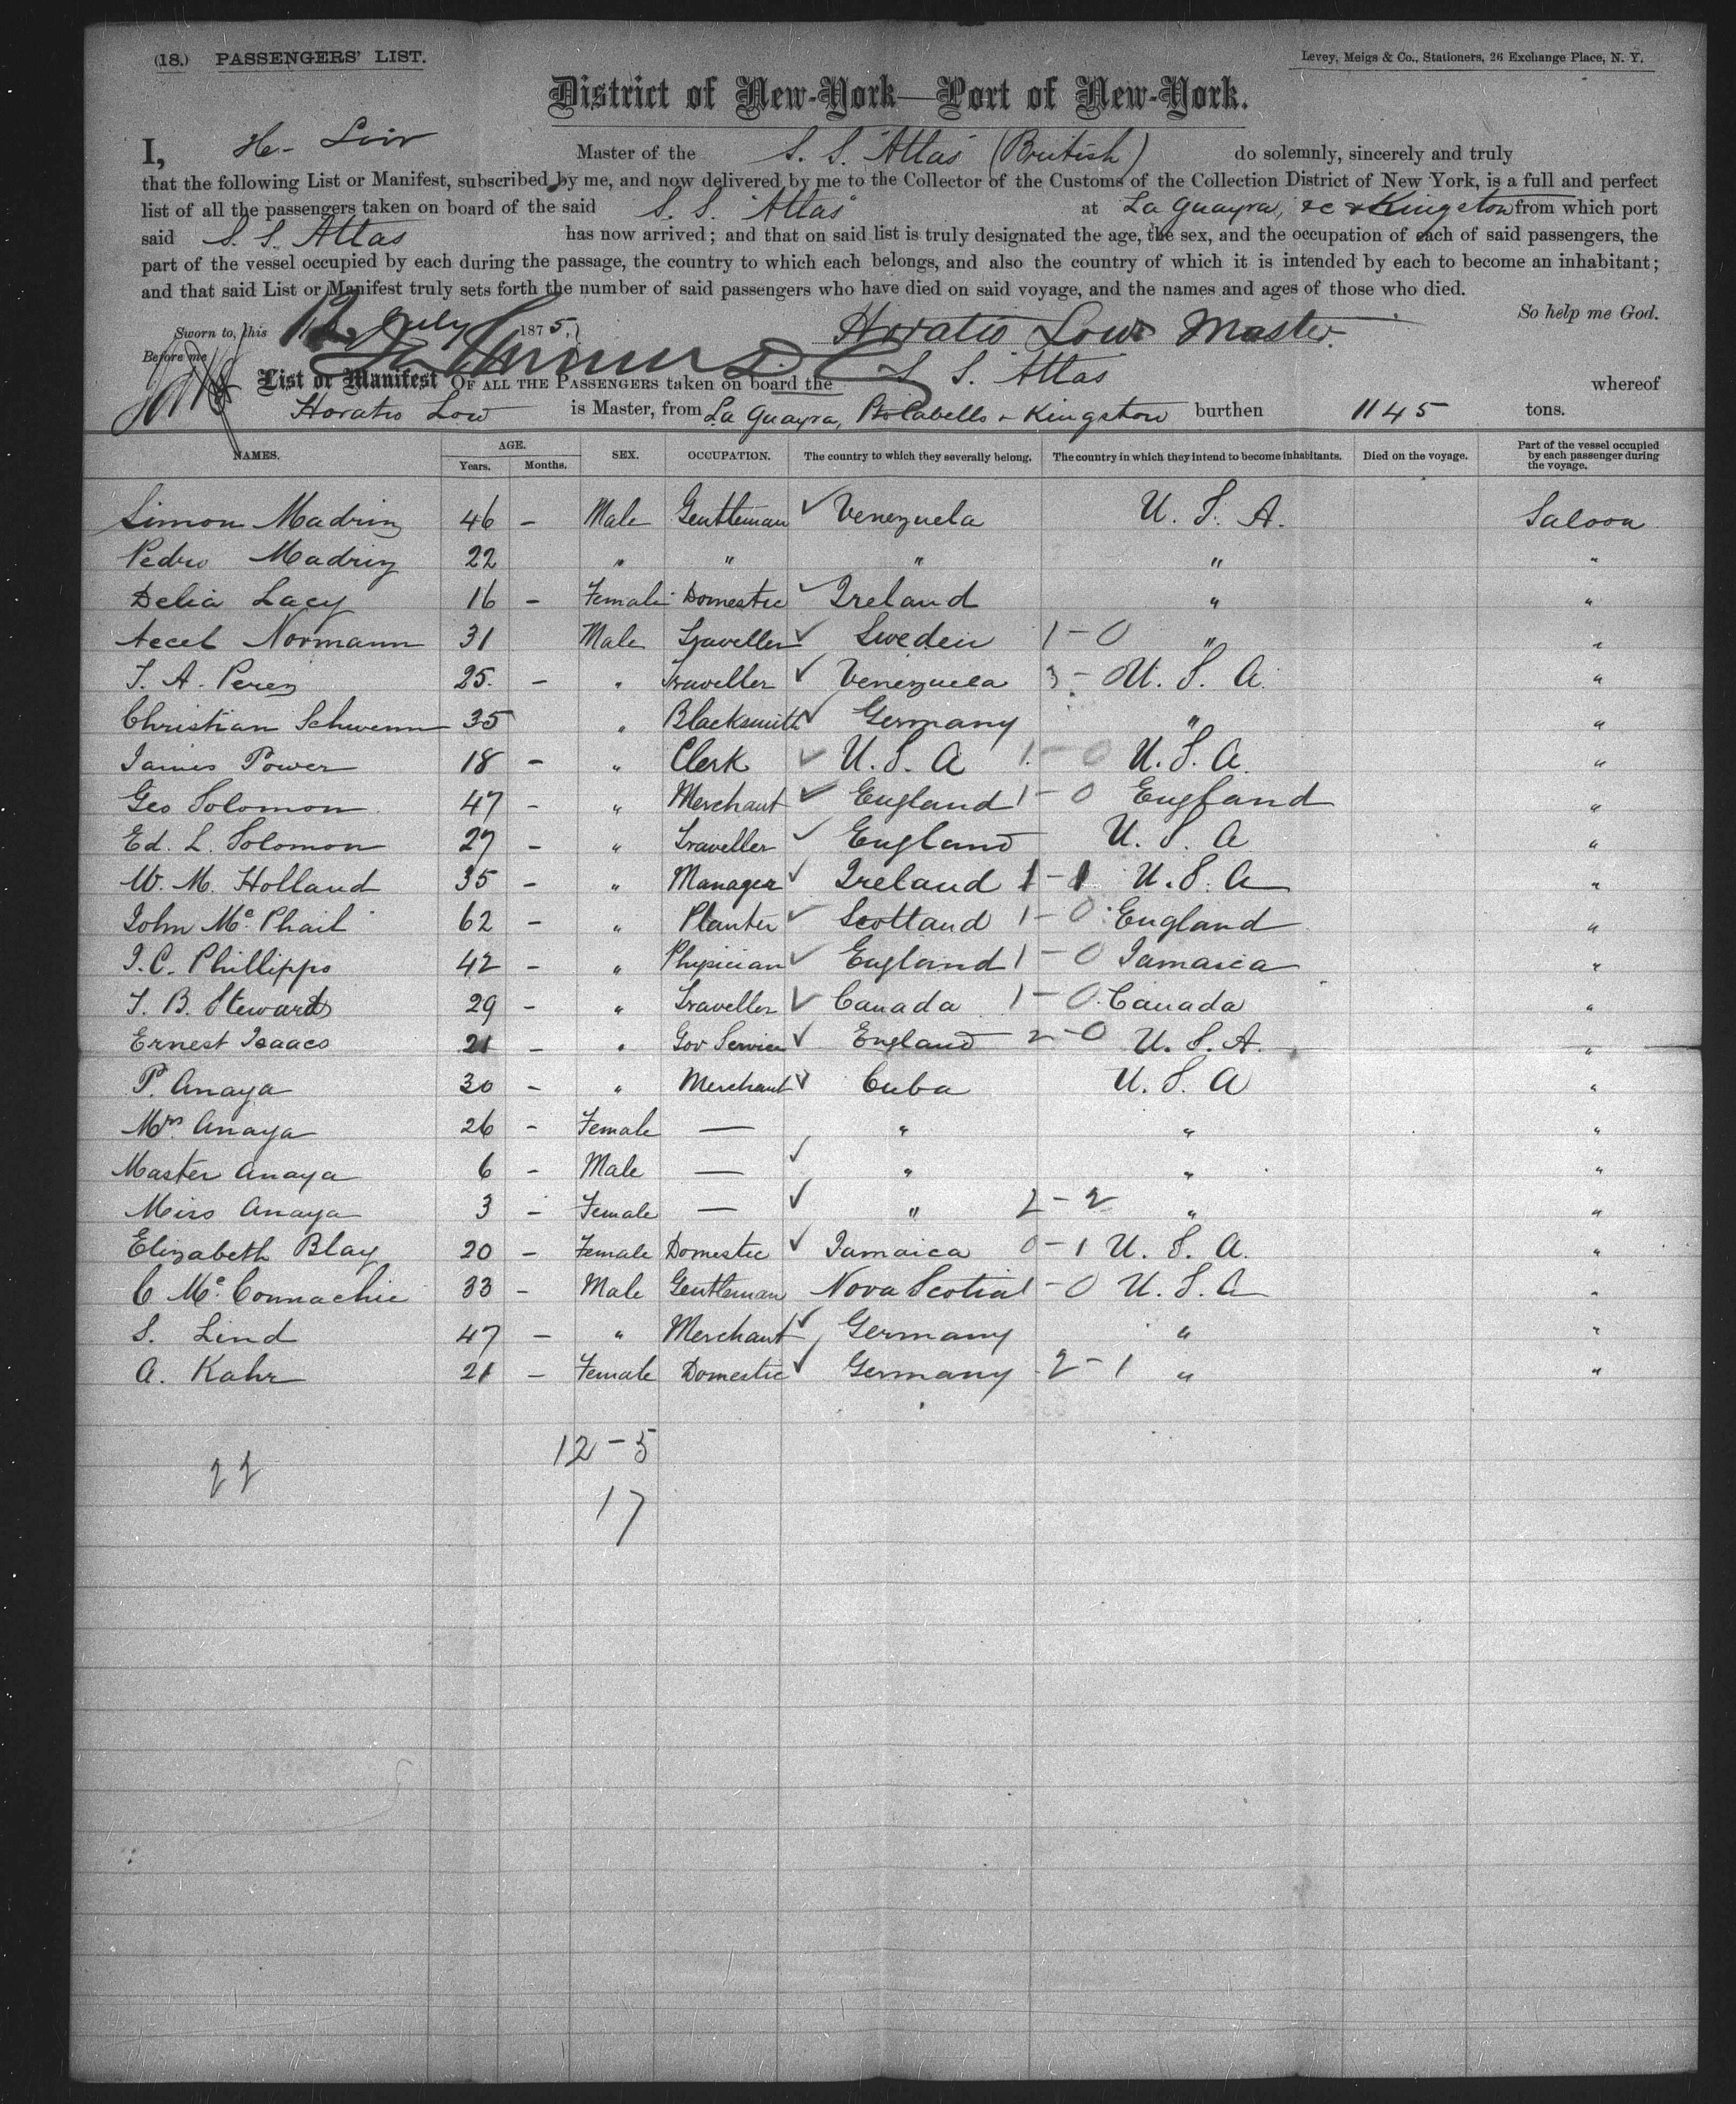 (18.) PASSENGERS' LIST. Levey, Meigs & Co., Stationers, 26 Exchange Place, N. Y.
District of New-York—Port of New-York.
I, H. Low Master of the S. S. "Atlas" (British) do solemnly, sincerely and truly
that the following List or Manifest, subscribed by me, and now delivered by me to the Collector of the Customs of the Collection District of New York, is a full and perfect
list of all the passengers taken on board of the said S. S. "Atlas" at La Guayra, &c & Kingston from which port
said S. S. Atlas has now arrived; and that on said list is truly designated the age, the sex, and the occupation of each of said passengers, the
part of the vessel occupied by each during the passage, the country to which each belongs, and also the country of which it is intended by each to become an inhabitant;
and that said List or Manifest truly sets forth the number of said passengers who have died on said voyage, and the names and ages of those who died.
So help me God.
Sworn to, this 12 July 1875. Horatio Low Master.
Before me
List or Manifest OF ALL THE PASSENGERS taken on board the S S. Atlas whereof
Horatio Low is Master, from La Guayra, Pto Cabello & Kingston burthen 1145 tons.
NAMES. AGE. Years. Months. SEX. OCCUPATION. The country to which they severally belong. The country in which they intend to become inhabitants. Died on the voyage. Part of the vessel occupied by each passenger during the voyage.
Simon Madriz 46 - Male Gentleman ✓ Venezuela U. S. A. Saloon
Pedro Madriz 22 " " " " "
Delia Lacy 16 - Female Domestic ✓ Ireland " "
Accel Normann 31 Male Traveller ✓ Sweden 1-0 " "
T. A. Perez 25. - " Traveller ✓ Venezuela 3-0 U. S. A. "
Christian Schwenn 35 " Blacksmith ✓ Germany " "
James Power 18 - " Clerk ✓ U. S. A 1-0 U. S. A. "
Geo Solomon 47 - " Merchant ✓ England 1-0 England "
Ed. L. Solomon 27 - " Traveller ✓ England U. S. A "
W. M. Holland 35 - " Manager ✓ Ireland 1-1 U. S. A "
John Mc Phail 62 - " Planter ✓ Scotland 1-0 England "
J. C. Phillippo 42 - " Physician ✓ England 1-0 Jamaica "
T. B. Steward 29 - " Traveller ✓ Canada 1-0 Canada "
Ernest Isaacs 21 - " Gov Service ✓ England 2-0 U. S. A. "
P. Anaya 30 - " Merchant ✓ Cuba U. S. A "
Mrs. Anaya 26 - Female — " " "
Master Anaya 6 - Male — ✓ " " "
Miss Anaya 3 - Female — ✓ " 2-2 " "
Elizabeth Blay 20 - Female Domestic ✓ Jamaica 0-1 U. S. A. "
C Mc. Connachie 33 - Male Gentleman Nova Scotia 1-0 U. S. A "
S. Lind 47 - " Merchant ✓ Germany " "
A. Kahr 21 - Female Domestic ✓ Germany 2-1 " "
12-5
22
17